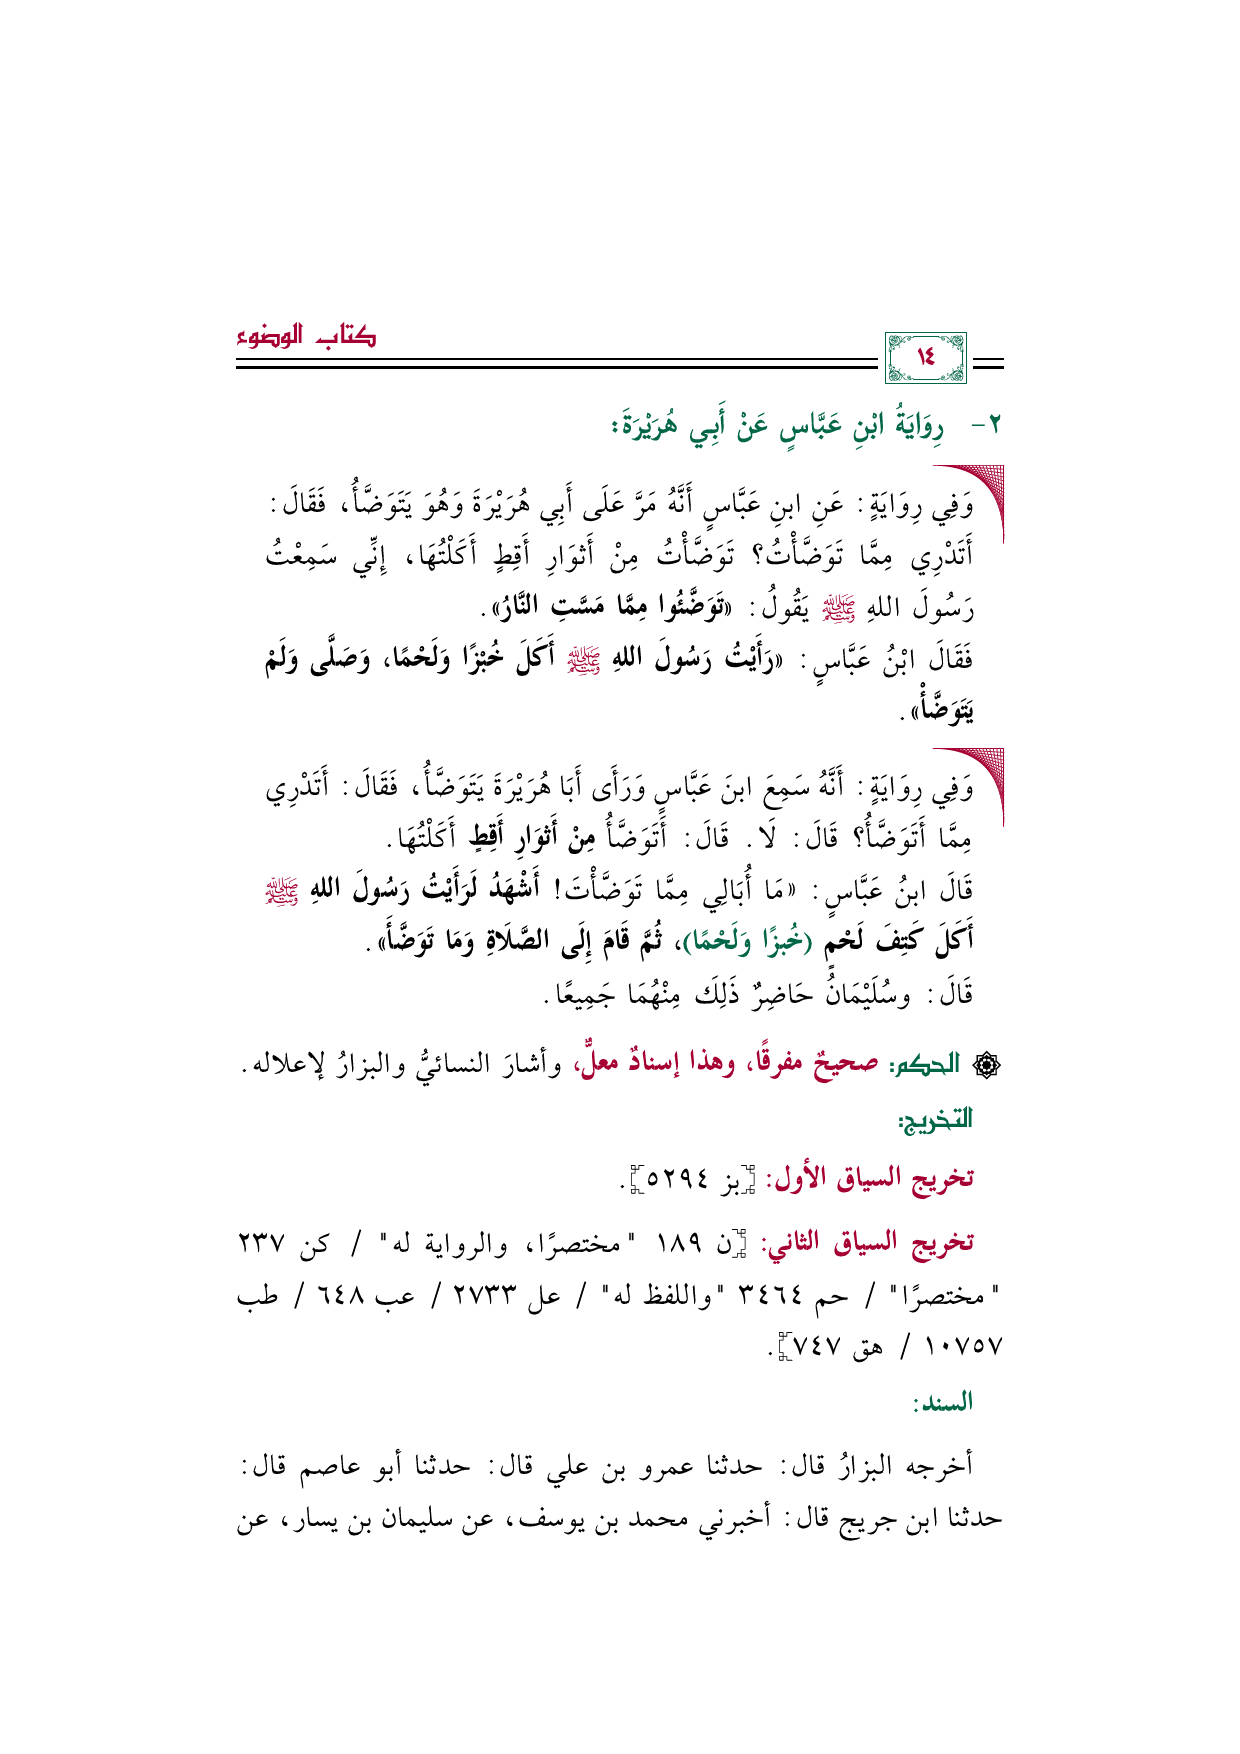 كتاب الوضوء
١٤
٢- رِوَايَةُ ابْنِ عَبَّاسٍ عَنْ أَبِي هُرَيْرَةَ:
وَفِي رِوَايَةٍ: عَنِ ابنِ عَبَّاسٍ أَنَّهُ مَرَّ عَلَى أَبِي هُرَيْرَةَ وَهُوَ يَتَوَضَّأُ، فَقَالَ:
أَتَدْرِي مِمَّا تَوَضَّأْتُ؟ تَوَضَّأْتُ مِنْ أَثوَارِ أَقِطٍ أَكَلْتُهَا، إِنِّي سَمِعْتُ
رَسُولَ اللهِ ﷺ يَقُولُ: «تَوَضَّئُوا مِمَّا مَسَّتِ النَّارُ».
فَقَالَ ابْنُ عَبَّاسٍ: «رَأَيْتُ رَسُولَ اللهِ ﷺ أَكَلَ خُبْزًا وَلَحْمًا، وَصَلَّى وَلَمْ
يَتَوَضَّأْ».
وَفِي رِوَايَةٍ: أَنَّهُ سَمِعَ ابنَ عَبَّاسٍ وَرَأَى أَبَا هُرَيْرَةَ يَتَوَضَّأُ، فَقَالَ: أَتَدْرِي
مِمَّا أَتَوَضَّأُ؟ قَالَ: لَا. قَالَ: أَتَوَضَّأُ مِنْ أَثوَارِ أَقِطٍ أَكَلْتُهَا.
قَالَ ابنُ عَبَّاسٍ: «مَا أُبَالِي مِمَّا تَوَضَّأْتَ! أَشْهَدُ لَرَأَيْتُ رَسُولَ اللهِ ﷺ
أَكَلَ كَتِفَ لَحْمٍ (خُبزًا وَلَحْمًا)، ثُمَّ قَامَ إِلَى الصَّلَاةِ وَمَا تَوَضَّأَ».
قَالَ: وسُلَيْمَانُ حَاضِرٌ ذَلِكَ مِنْهُمَا جَمِيعًا.
الحكم: صحيحٌ مفرقًا، وهذا إسنادٌ معلٌّ، وأشارَ النسائيُّ والبزارُ لإعلاله.
التخريج:
تخريج السياق الأول: [بز ٥٢٩٤].
تخريج السياق الثاني: [ن ١٨٩ "مختصرًا، والرواية له" / كن ٢٣٧
"مختصرًا" / حم ٣٤٦٤ "واللفظ له" / عل ٢٧٣٣ / عب ٦٤٨ / طب
١٠٧٥٧ / هق ٧٤٧].
السند:
أخرجه البزارُ قال: حدثنا عمرو بن علي قال: حدثنا أبو عاصم قال:
حدثنا ابن جريج قال: أخبرني محمد بن يوسف، عن سليمان بن يسار، عن